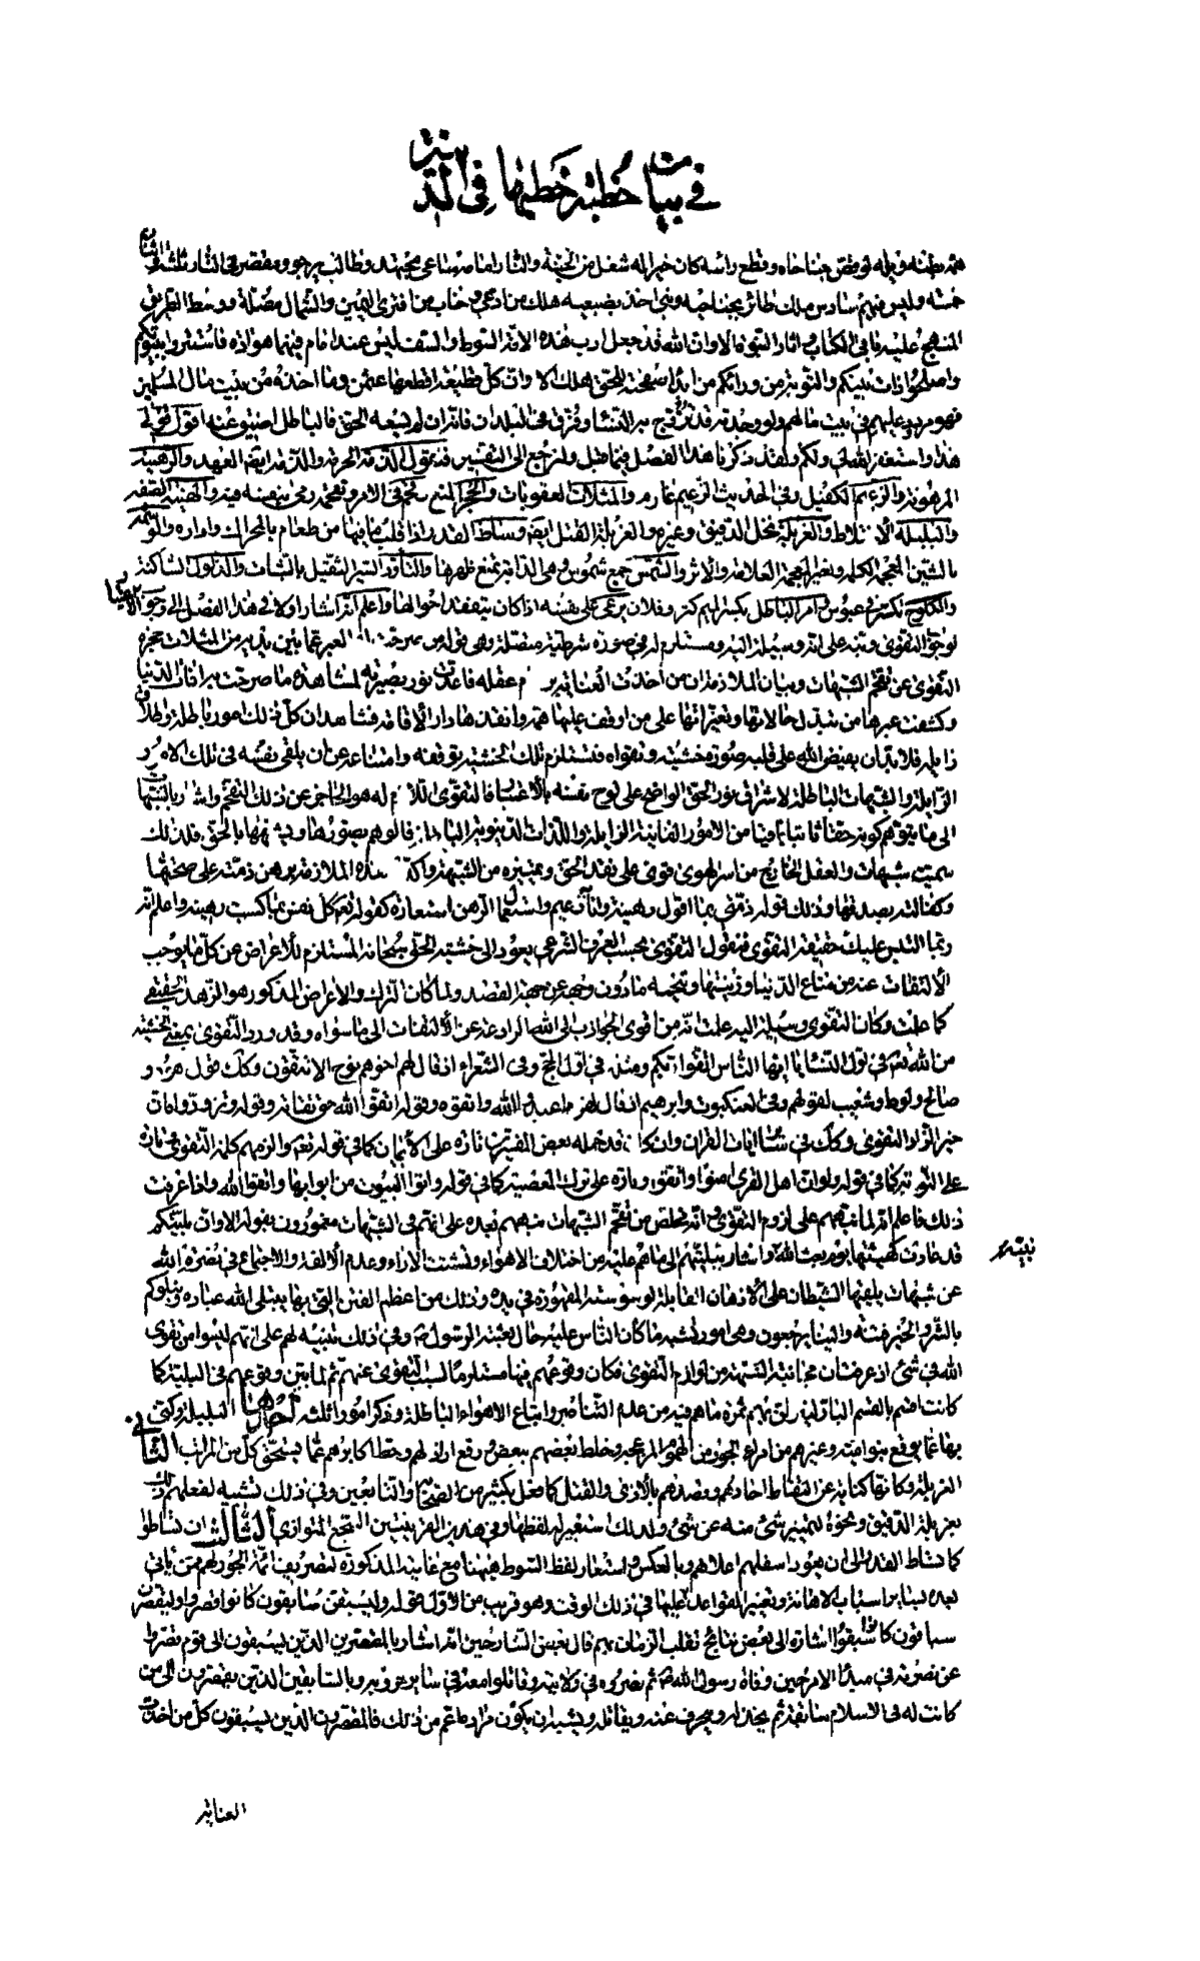 في بيان خطبة خطبها في المدينة
همه بطنه وفرجه لو قص جناحاه وقطع رأسه كان خيرا له شغل من الجنة والنار امامه ساع مجتهد وطالب يرجو ومقصر في النار ثلثة واثنان
خمسة وليس فيهم سادس ملك طائر بجناحيه ونبي اخذ بضبعيه هلك من ادعى وخاب من افترى اليمين والشمال مضلة ووسط الطريق
المنهج عليه باقي الكتاب واثار النبوة الا وان الله قد جعل ادب هذه الامة السوط والسيف ليس عند امام فيهما هوادة فاستتروا ببيوتكم
واصلحوا ذات بينكم والتوبة من ورائكم من ابدا صفحته للحق هلك الا وان كل قطيعة اقطعها عثمن وما اخذه من بيت مال المسلمين
فهو مردود عليهم في بيت مالهم ولو وجدته قد تزوج به النساء وفرق في البلدان فانه ان لم يسعه الحق فالباطل اضيق عنه اقول قولي
هذا واستغفر الله لي ولكم ولقد ذكرنا هذا الفصل فيما قبل ولنرجع الى التفسير فنقول الذمة الحرمة والذمة ايضا العهد والرهينة
المرهونة والزعيم الكفيل وفي الحديث الزعيم غارم والمثلات العقوبات والحجز المنع وتقحم في الامر وتقحمه رمى بنفسه فيه والهيئة الصفة
والبلبلة الاختلاط والغربلة نخل الدقيق وغيره والغربلة القتل ايضا وساط القدر اذا قلب ما فيها من طعام بالمحراك واداره والوشمة
بالشين المعجمة الكلمة وبغير المعجمة العلامة والاثر والشمس جمع شموس وهي الدابة تمنع ظهرها والتأود السير الثقيل بالثبات والذلول الساكنة
والكلوح تكشر في عبوس وامر الباطل بكسر الميم كثر وفلان يرعى على نفسه اذا كان يتفقد احوالها واعلم انه اشار اولا في هذا الفصل الى وجوب الاعتبار
لوجوب التقوى ونبه على انه وسيلة اليه ومستلزم له في صورة شرطية متصلة وهي قوله من صرحت له العبر عما بين يديه من المثلات حجزه
التقوى عن تقحم الشبهات وبيان الملازمة ان من اخذت العناية بزمام عقله فاعدت نور بصيرته لمشاهدة ما صرحت به افات الدنيا
وكشفت عبرها من تبدل حالاتها وتغيراتها على من اوقف عليها همه واتخذها دار الاقامة فشاهد ان كل ذلك امور باطلة واظلال
زايلة فلا بد ان يفيض الله على قلبه صورة خشيته وتقواه فتستلزم تلك الخشية توقفه وامتناعه عن ان يلقي نفسه في تلك الامور
الزايلة والشبهات الباطلة لاشراق نور الحق الواضح على لوح نفسه بالاعتبار فالتقوى اللازم له هو الحاجز عن ذلك التقحم واشار بالشبهات
الى ما يتوهم كونه حقا ثابتا باقيا من الامور الفانية الزايلة واللذات الدنيوية الباطلة فالوهم يصورها ويشبهها بالحق فلذلك
سميت شبهات والعقل الخارج من اسر الهوى قوي على نقد الحق وتمييزه من الشبهة واكد هذه الملازمة برهن ذمته على صحتها
وكفالته بصدقها وذلك قوله ذمتي بما اقول رهينة وانا به زعيم واستعمال الرهن استعارة كقوله تعالى كل نفس بما كسبت رهينة واعلم انه
ربما التبس عليك حقيقة التقوى فنقول التقوى بحسب العرف الشرعي يعود الى خشية الحق سبحانه المستلزم للاعراض عن كل ما يوجب
الالتفات عنه من متاع الدنيا وزينتها وتنحية ما دون وجهه عن جهة القصد ولما كان الترك والاعراض المذكور هو الزهد الحقيقي
كما علمت وكان التقوى وسيلة اليه علمت انه من اقوى الجواذب الى الله الرادعة عن الالتفات الى ما سواه وقد ورد التقوى بمعنى الخشية
من الله تعالى في اول النساء يا ايها الناس اتقوا ربكم ومثله في اول الحج وفي الشعراء اذ قال لهم اخوهم نوح الا تتقون وكذلك قول هود و
صالح ولوط وشعيب لقومهم وفي العنكبوت وابرهيم اذ قال لقومه اعبدوا الله واتقوه وقوله اتقوا الله حق تقاته وقوله وتزودوا فان
خير الزاد التقوى وكذلك في سائر ايات القران وان كان قد حمله بعض المفسرين تارة على الايمان كما في قوله تعالى والزمهم كلمة التقوى وتارة
على التوبة كما في قوله ولو ان اهل القرى امنوا واتقوا وتارة على ترك المعصية كما في قوله واتوا البيوت من ابوابها واتقوا الله واذا عرفت
ذلك فاعلم انه لما نبههم على لزوم التقوى وانه مخلص من تقحم الشبهات نبههم بعده على انهم في الشبهات مغمورون بقوله الا وان بليتكم
قد عادت كهيئتها يوم بعث الله نبيه واشار ببليتهم الى ما هم عليه من اختلاف الاهواء وتشتت الاراء وعدم الالفة والاجتماع في نصرة الله
نبيه
عن شبهات يلقيها الشيطان على الاذهان القابلة لوسوسته المقهورة في يده وذلك من اعظم الفتن التي بها يبتلي الله عباده ونبلوكم
بالشر والخير فتنة والينا ترجعون وهي امور تشبه ما كان الناس عليه حال بعثة الرسول ص وفي ذلك تنبيه لهم على انهم ليسوا من تقوى
الله في شئ اذ عرفت ان مجانبة الشبهة من لوازم التقوى فكان وقوعهم فيها مستلزما لسلب التقوى عنهم ثم لما بين وقوعهم في البلية كما
كانت اقسم بالقسم البار لينزلن بهم ثمرة ما هم فيه من عدم التناصر واتباع الاهواء الباطلة وذكر امورا ثلثة احدها البلبلة وكنى
بها عما يوقع بنو امية وغيرهم من امراء الجور من الهموم المزعجة وخلط بعضهم ببعض ورفع اراذلهم وحط اكابرهم عما يستحق كل من المراتب الثاني
الغربلة وكانها كناية عن التقاط احادهم وقصدهم بالاذى والقتل كما فعل بكثير من الصحابة والتابعين وفي ذلك تشبيه لفعلهم ذلك
بغربلة الدقيق ونحوه لتمييز شئ منه عن شئ ولذلك استعير له لفظها وفي هذين القرينتين السجع المتوازي الثالث ان تساطوا
كما تساط القدر الى ان يعود اسفلهم اعلاهم وبالعكس واستعار لفظ السوط هيهنا مع غايته المذكورة لتصريف ائمة الجور لهم ممن ياتي
بعده بساير اسباب الاهانة وتغيير القواعد عليها في ذلك الوقت وهو قريب من الاول قوله وليسبقن سابقون كانوا قصروا وليقصرن
سباقون كانوا سبقوا اشارة الى بعض نتائج تقلب الزمان بهم قال بعض الشارحين انه اشار بالمقصرين الذين يسبقون الى قوم قصروا
عن نصرته في مبدأ الامر حين وفاة رسول الله ص ثم نصروه في ولايته وقاتلوا معه في ساير حروبه وبالسابقين الذين يقصرون الى من
كانت له في الاسلام سابقة ثم يخذله وينحرف عنه ويقاتله ويشبه ان يكون مراده اعم من ذلك فالمقصرون الذين يسبقون كل من اخذت
العناية